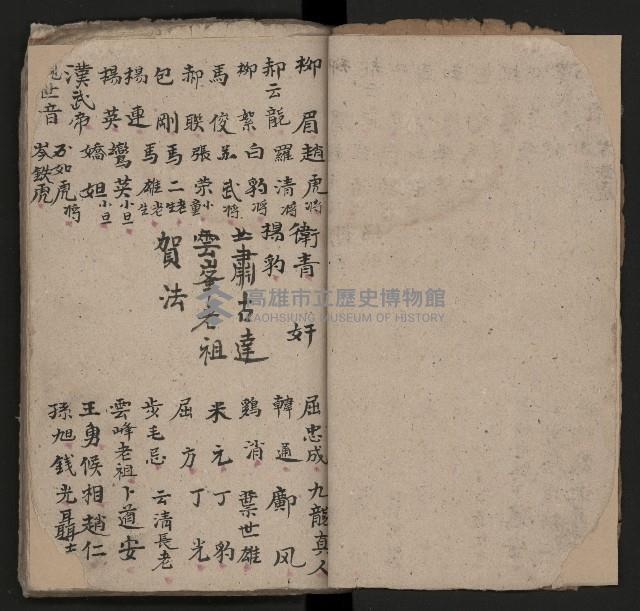 柳眉趙虎将衛青 奸
郝云龍羅清将揚豹
柳絮白豹将
馬俊 武将
郝联張荣小童
包剛馬二老生
揚連馬雄老生
揚英鸞英小旦
漢武帝嬌妲小旦
世音 如虎将
岑鉄虎
蕭古達
雲峯老祖
賀法
屈忠成 九龍真人
韓通 鄺风
鷄消 葉世雄
米元 丁豹
屈方 丁光
步毛忌 云清長老
雲峰老祖卜道安
王勇候相趙仁
孫旭錢光聶士
高雄市立歷史博物館
KAOHSIUNG MUSEUM OF HISTORY